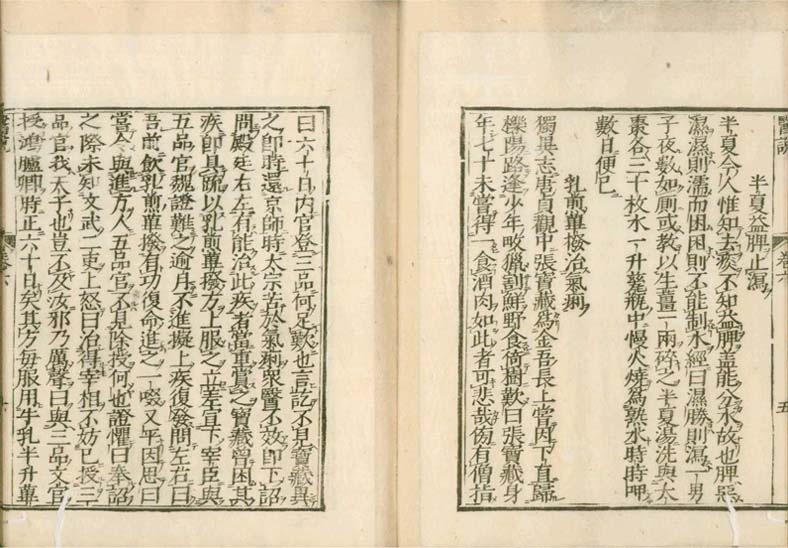 醫說
卷六
五
半夏益脾止瀉
半夏今人惟知去痰不知益脾蓋能分水故也脾惡
濕濕則濡而困困則不能制水經曰濕勝則瀉一男
子夜數如厠或教以生薑一兩碎之半夏湯洗與大
棗各三十枚水一升甆瓶中慢火燒爲熟水時時呷
數日便已
乳煎蓽撥治氣痢
獨異志唐貞觀中張寶藏爲金吾長上嘗因下直歸
櫟陽路逢少年畋獵割鮮野食倚樹歎曰張寶藏身
年七十未嘗得一食酒肉如此者可悲哉傍有僧指
曰六十日内官登三品何足歎也言訖不見寶藏異
之即時還京師時太宗苦於氣痢衆醫不效即下詔
問殿廷右左有能治此疾者當重賞之寶藏曾困其
疾即具䟽以乳煎蓽撥方上服之立差宣下宰臣與
五品官魏證難之逾月不進擬上疾復發問左右曰
吾前飲乳煎蓽撥有功復命進之一啜又平因思曰
嘗令與進方人五品官不見除授何也證懼曰奉詔
之際未知文武二吏上怒曰治得宰相不妨已授三
品官我天子也豈不及汝邪乃厲聲曰與三品文官
授鴻臚卿時正六十日矣其方每服用牛乳半升蓽